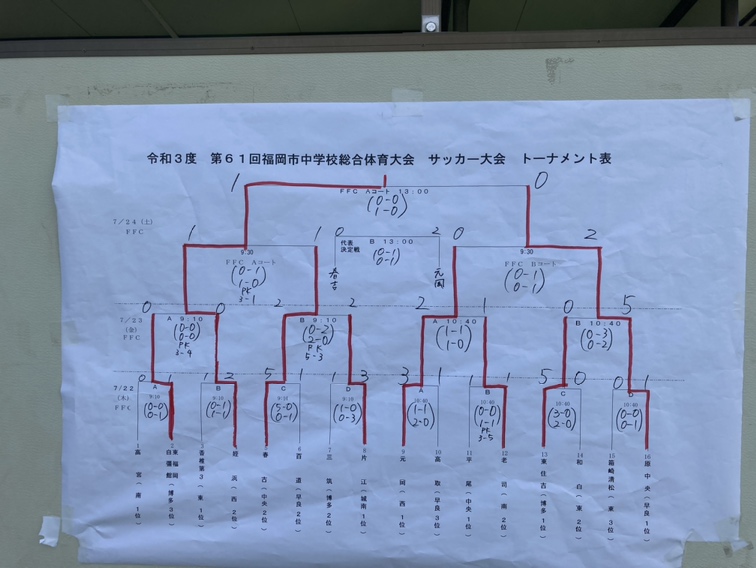 令和3度 第61回福岡市中学校総合体育大会 サッカー大会 トーナメント表
1 0
FFC Aコート 13:00
(0-0)
1-0
7/24(土)
FFC
1 1 0 2 0 2
9:30
FFC Aコート
(0-1)
1-0
PK
3-1
代表
決定戦
B 13:00
(0-1)
0-1
春吉
元岡
9:30
FFC Bコート
(0-1)
0-1
7/23
(金)
FFC
0 0 2 2 2 1 0 5
A 9:10
(0-0)
0-0
PK
3-4
B 9:10
(0-2)
2-0
PK
5-3
A 10:40
(1-1)
1-0
B 10:40
(0-3)
0-2
7/22
(木)
FFC
0 1 1 2 5 1 1 3 3 1 0 1 5 0 0 1
A
9:10
(0-0)
0-1
B
9:10
(0-1)
1-1
C
9:10
(5-0)
0-1
D
9:10
(1-0)
0-3
A
10:40
(1-1)
2-0
B
10:40
(0-0)
1-1
PK
3-5
C
10:40
(3-0)
2-0
D
10:40
(0-0)
0-1
1 高宮(南1位)
2 東福岡自彊館(博多3位)
3 香椎第3(東1位)
4 姪浜(西2位)
5 春吉(中央2位)
6 百道(早良2位)
7 三筑(博多2位)
8 片江(城南1位)
9 元岡(西1位)
10 高取(早良3位)
11 平尾(中央1位)
12 老司(南2位)
13 東住吉(博多1位)
14 和白(東2位)
15 箱崎清松(東3位)
16 原中央(早良1位)